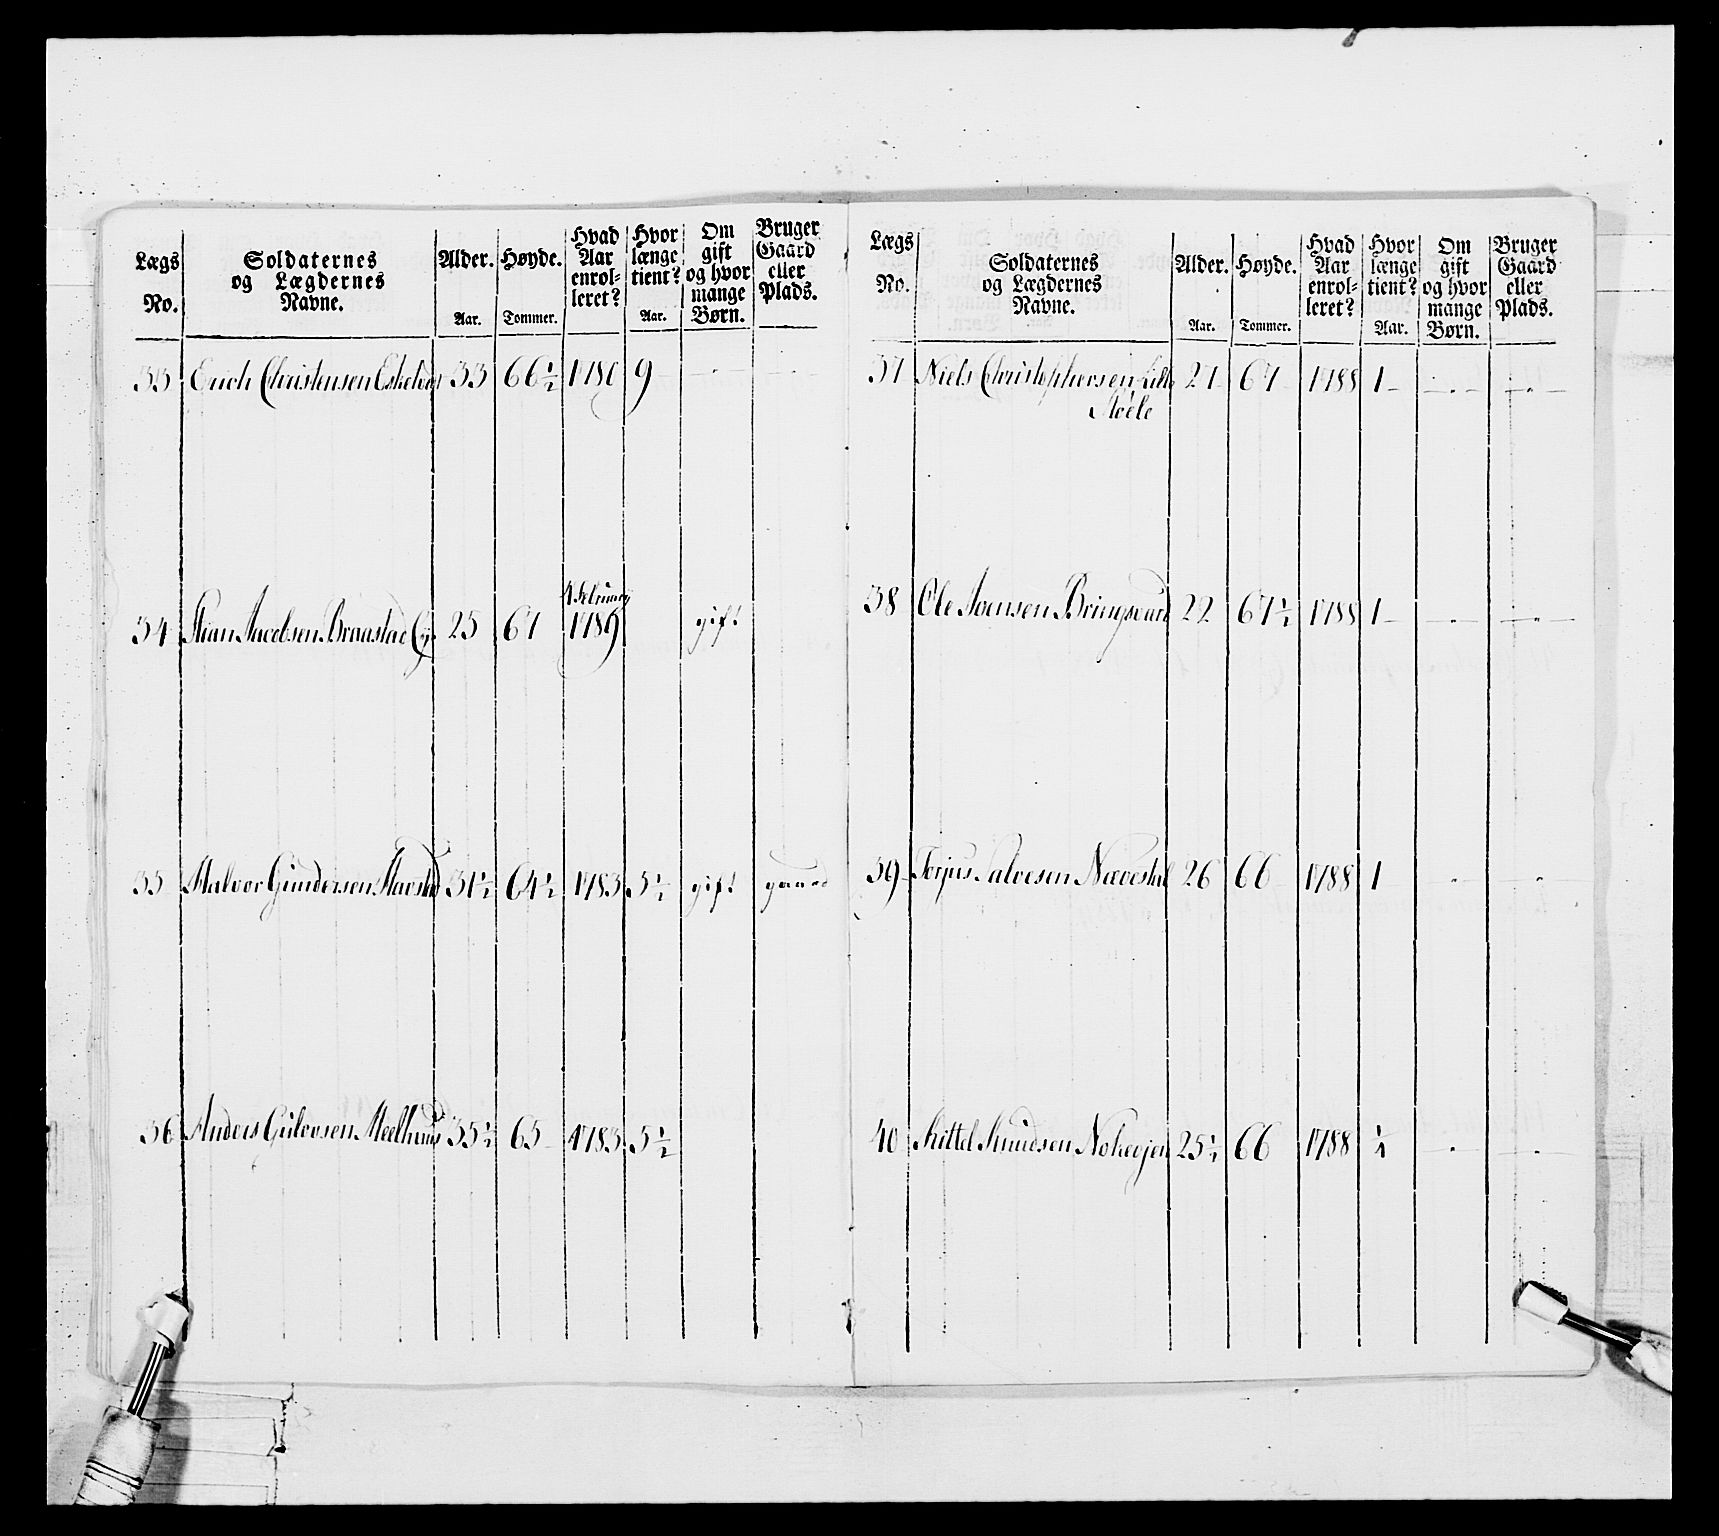 Lægs No. | Soldaternes og Lægdernes Navne. | Alder. Aar. | Høyde. Tommer. | Hvad Aar enrolleret? | Hvor længe tient? Aar. | Om gift og hvor mange Børn. | Bruger Gaard eller Plads.
33 Erich Christensen 33 66½ 1780 9 — —
4 Februarij
34 Jacobsen Braastad 25 67 1789 gift
35 Halvor Gundersen 31½ 64½ 1783 5½ gift gaard
36 Anders 35½ 65 1783 5½
Lægs No. | Soldaternes og Lægdernes Navne. | Alder. Aar. | Høyde. Tommer. | Hvad Aar enrolleret? | Hvor længe tient? Aar. | Om gift og hvor mange Børn. | Bruger Gaard eller Plads.
37 Niels Christophersen 21 67 1788 1 — —
38 Ole 22 67½ 1788 1 — —
39 Torjus Salvesen Nævestal 26 66 1788 1 — —
40 Kittel Knudsen 25½ 66 1788 ½ — —